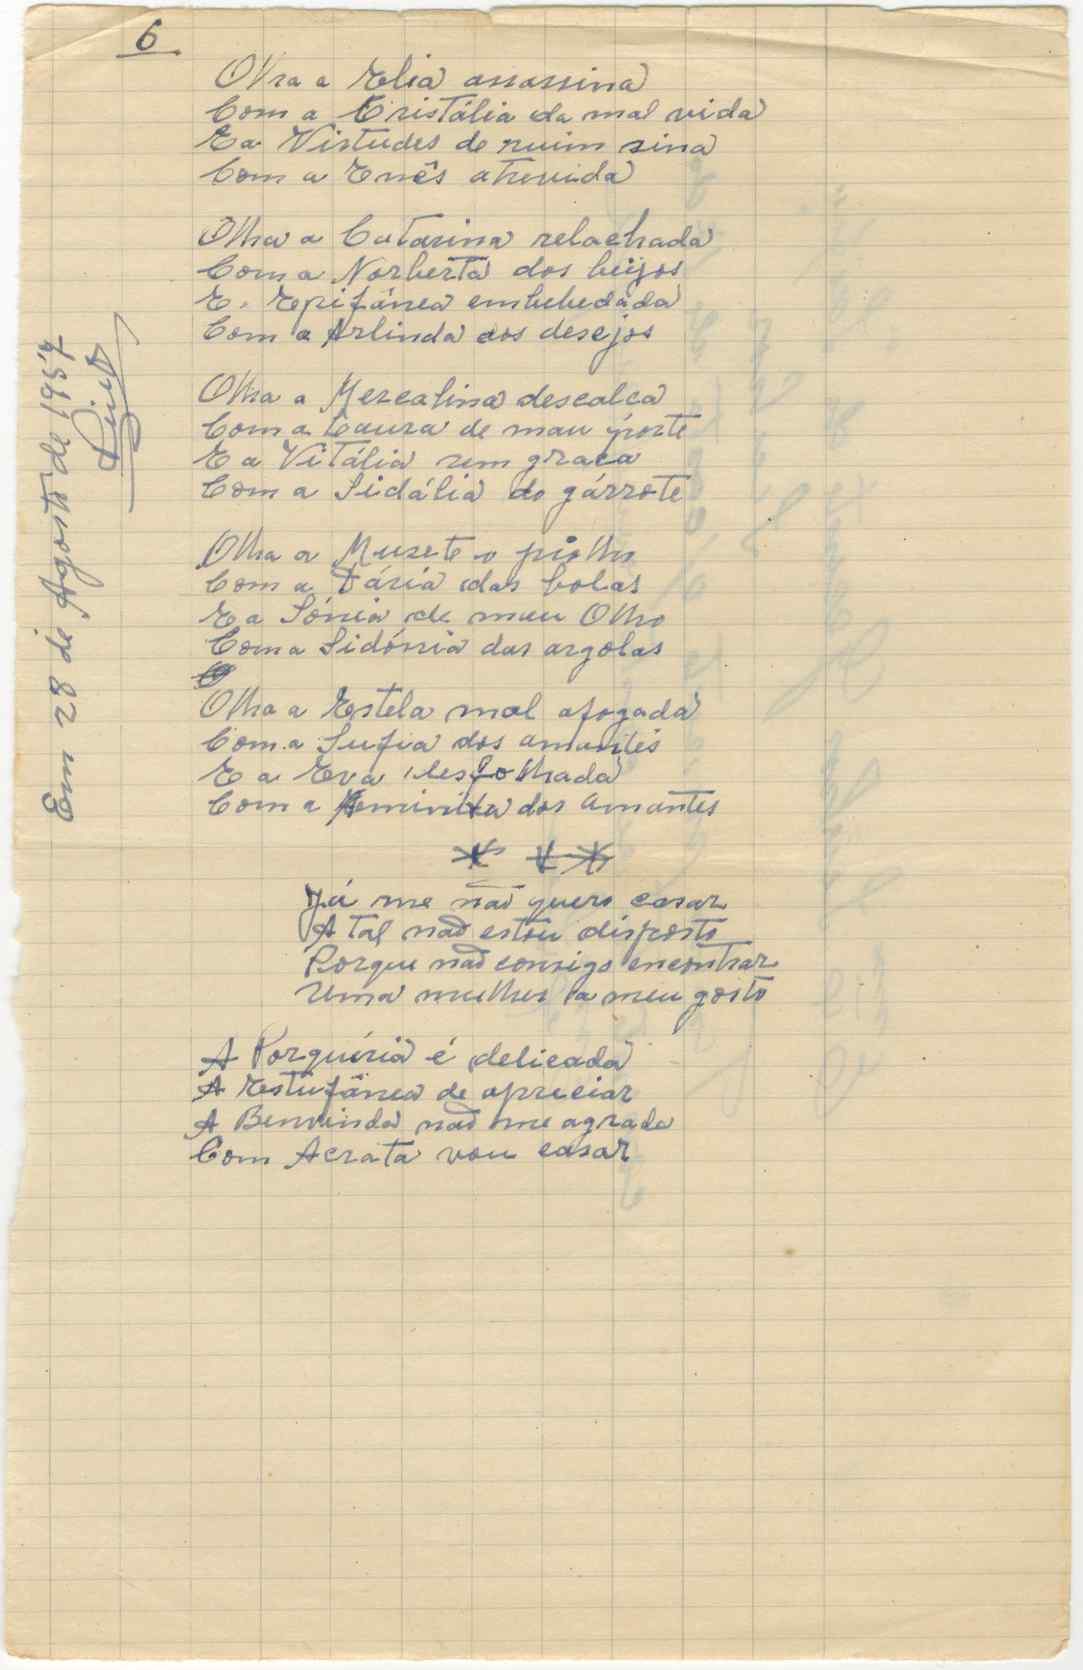 6
Olha a Elia assassina
Com a Cristália da mal vida
E a Virtudes de ruim sina
Com a Enês atrevida
Olha a Catarina relachada
Com a Norberta dos beijos
E. Epifánea embebedada
Com a Arlinda dos desejos
Olha a Mercalina descalca
Com a Laura de mau porte
E a Vitália sem graca
Com a Sidália do gárrote
Olha a Musete o piolho
Com a Dária das bolas
E a Sónia de meu Olho
Com a Sidónia das argolas
Olha a Estela mal afogada
Com a Sufia dos amantes
E a Eva desfolhada
Com a dos amantes
Já me não quero casar
A tal não estou disposto
Porque não consigo encontrar
Uma mulher a meu gosto
A Porquíria é delicada
A Estufánea de apreciar
A Benvinda não me agrada
Com Acrata vou casar
Em 28 de Agosto de 1957,